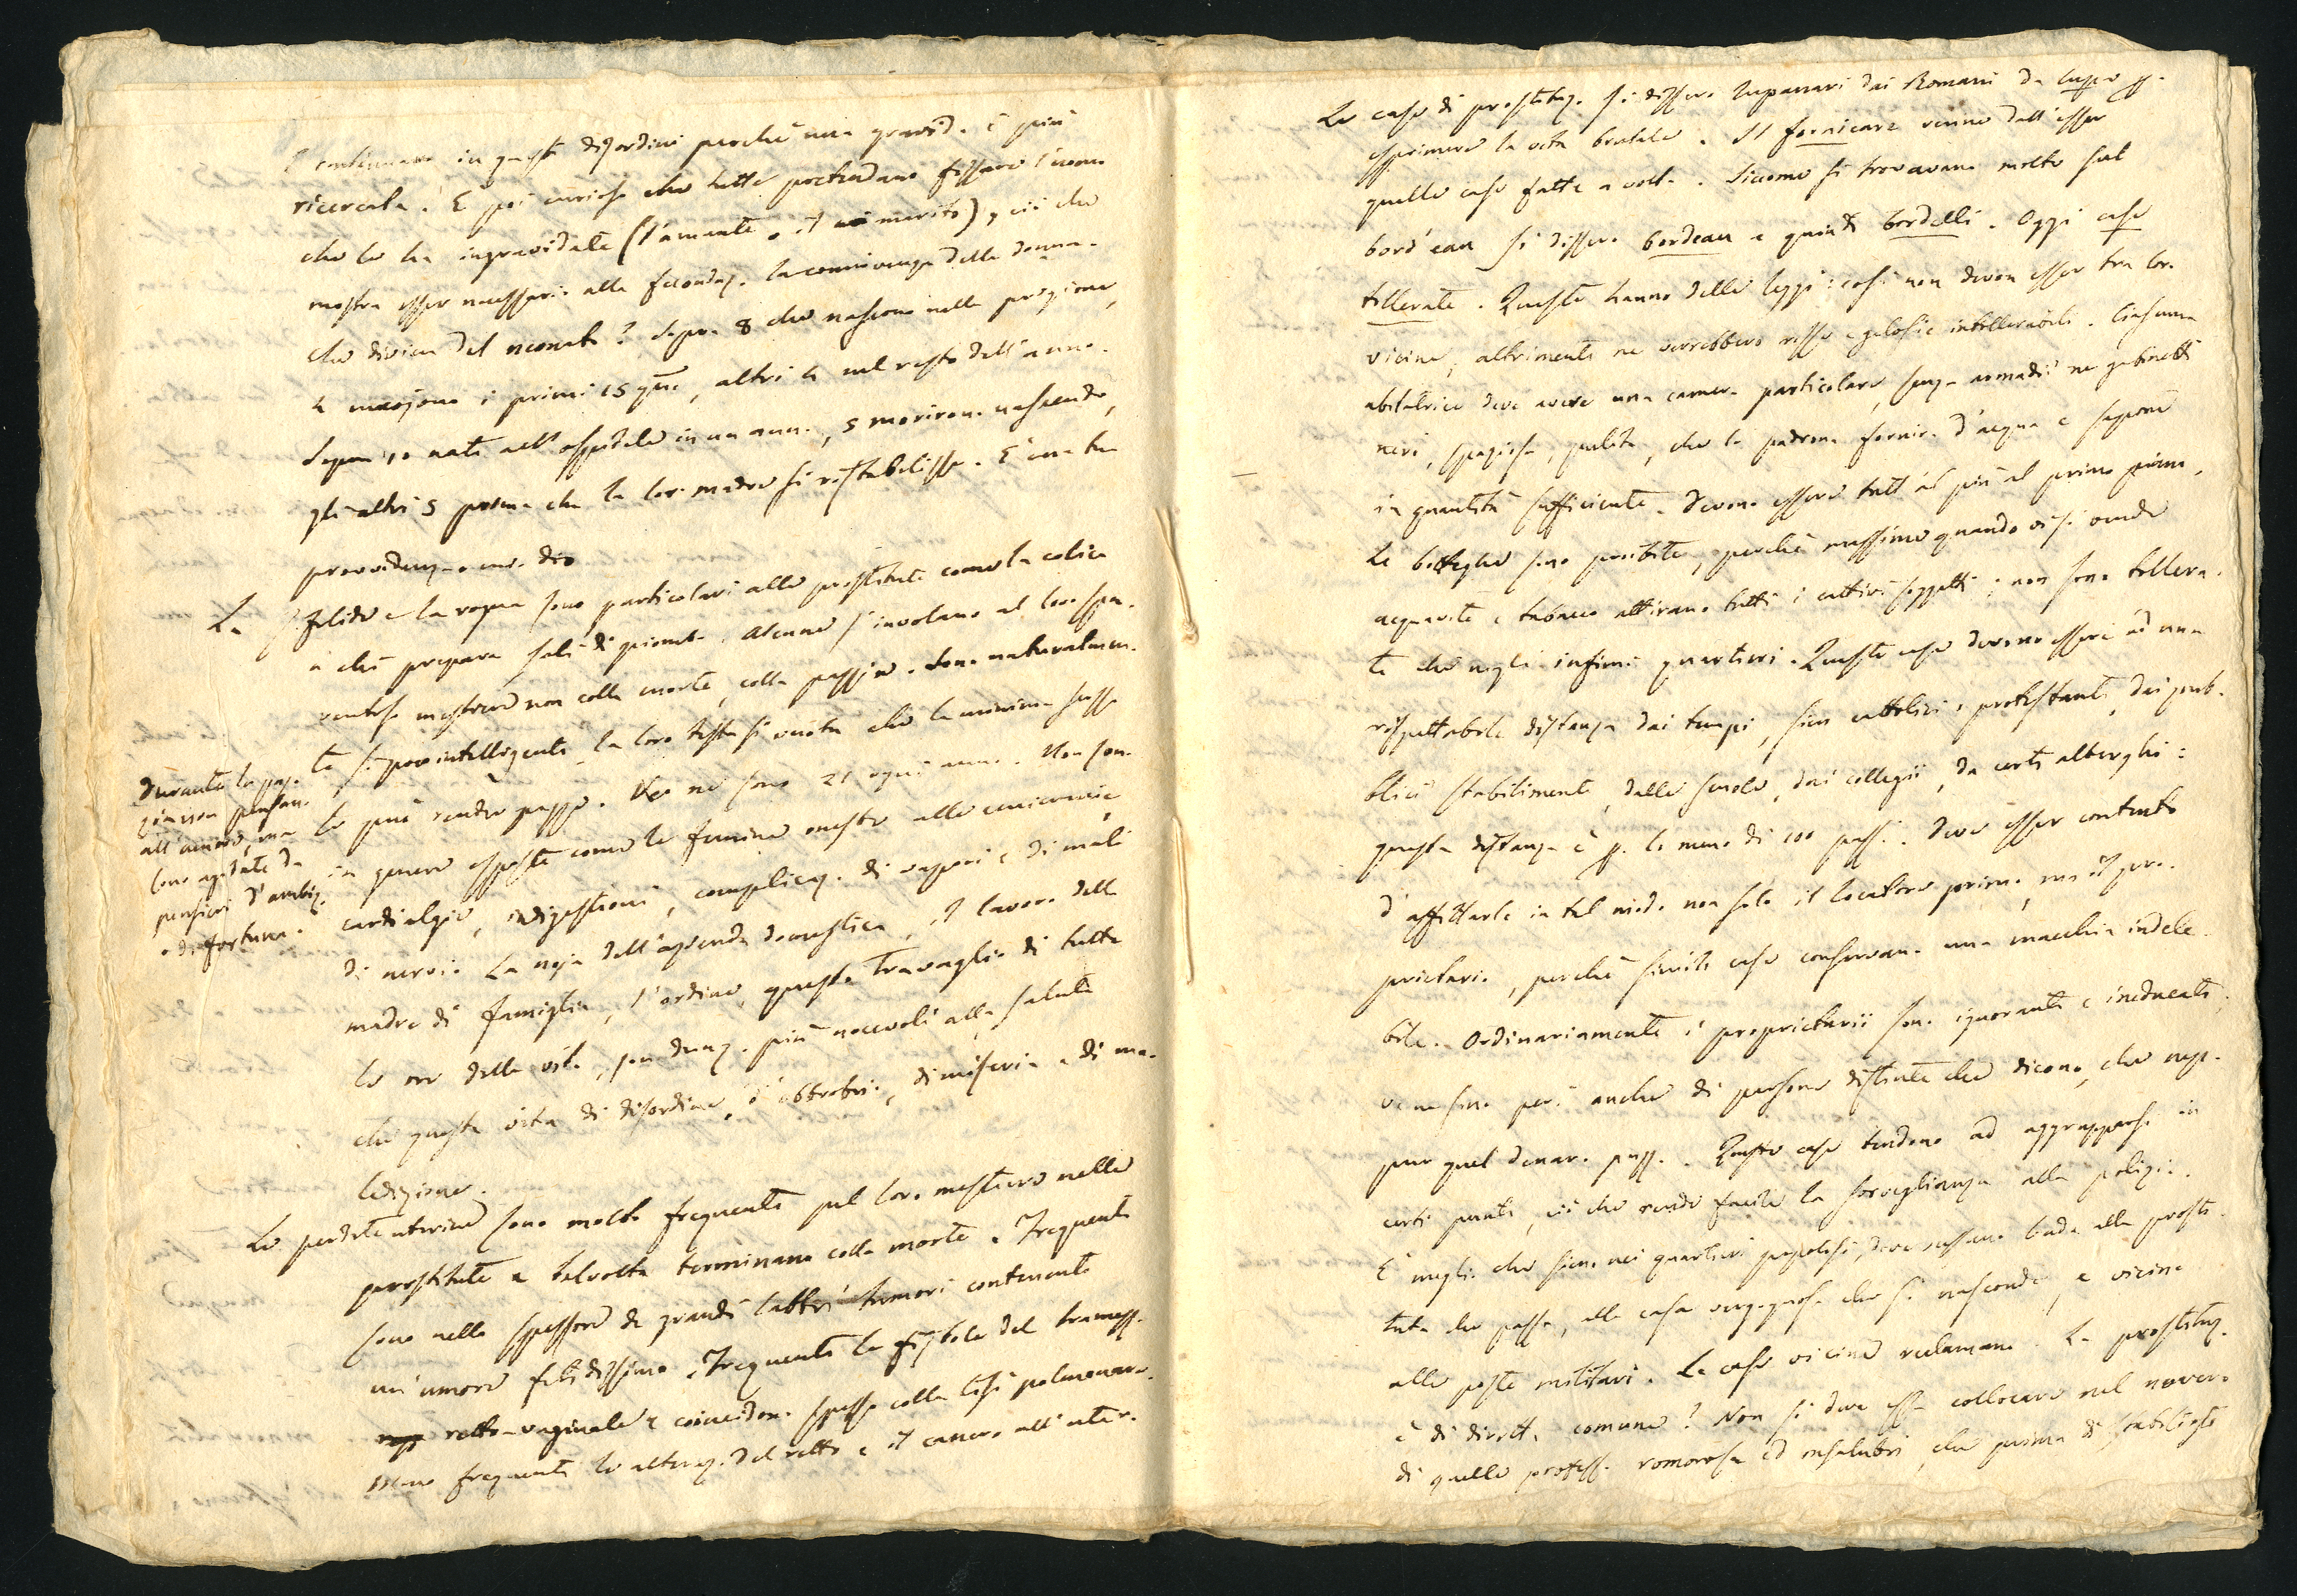 E continuano in questi disordini perchè una gravid. è più
ricercata. È poi curioso che tutte pretendano fissare l'uomo
che le ha ingravidate (l'amante o il marito), ciò che
mostra esser necessaria alla fecondaz. la connivenza della donna.
Che divien del neonato? Sopra 8 che nascono nelle prigioni,
4 muojono i primi 15 gni, altri 4 nel resto dell'anno.
Sopra 10 nati nell'ospitale in un anno, 5 morirono nascendo,
gli altri 5 prima che la lor madre si ristabilisse. È una tra
provvidenz. o un. dio
La sifilide e la rogna sono particolari alle prostitute come la colica
a chi prepara sali di piombo. Alcune s'involano al loro spa-
ventoso mestiere non colla morte, colla pazzia. Sono naturalmen-
te sì poco intelligenti, la loro testa sì vuota che la minima scossa
le può render pazze. Ve ne sono 21 ogni anno. Non sono
in genere esposte come le femine oneste alle emicranie,
cardialgie, indigestioni, complicaz. di vapori e di mali
di nervi. La noja dell'azienda domestica, il lavoro della
madre di famiglia, l'ordine, questo travaglio di tutte
le ore della vita, son dunq. più nocevoli alla salute
che questa vita di disordine, d'obbrobrio, di miseria e di ma-
ledizione.
Durante la paz-
zia non pensano
all'amore, ma
sono agitate da
pensieri d'ambiz.
o di fortuna.
Le perdite uterine sono molto frequenti pel loro mestiere nelle
prostitute e talvolta terminano colla morte. Frequenti
sono nello spessore di grandi labbri tumori contenenti
un'umore fetidissimo. Frequenti le fistole del tramezz.
retto-vaginale e coincidon. spesso colla tisi polmonare.
Meno frequenti le alteraz. del retto e il cancro all'utero.
Le case di prostituz. si dissero lupanari dai Romani da lupo p.
esprimere la vita brutale. Il fornicare venne dall'esser
quelle case fatte a volta. Siccome si trovavano molte sul
bord'eau si dissero bordeau e quindi bordelli. Oggi case
tollerate. Queste hanno delle leggi: così non devon esser tra lor.
vicine, altrimenti ne verrebbero risse e gelosie intollerabili. Ciascuna
abitatrice deve avere una camera particolare, senza armadii nè gabinetti
neri, spaziosa, pulita, che la padrona fornirà d'acqua e sapone
in quantità sufficiente. Devono essere tutt'al più al primo piano,
Le botteghe sono proibite, perchè massime quando vi si vende
acquavite e tabacco attirano tutti i cattivi soggetti; non sono tollera-
te che negli infimi quartieri. Queste case devono essere ad una
rispettabile distanza dai tempi, sian cattolici o protestanti, dai pub-
blici stabilimenti, dalle scuole, dai collegii, da certi alberghi:
questa distanza è p. lo meno di 100 passi. Deve esser contento
d'affittarle in tal modo non solo il locatore primo, ma il pro-
prietario, perchè simili case conservano una macchia indele-
bile. Ordinariamente i proprietarii sono ignoranti e ineducati,
ve ne sono però anche di persone distinte che dicono, che nep-
pur quel denaro puzz. Queste case tendono ad aggrupparsi in
certi punti, ciò che rende facile la sorveglianza alla polizia.
È meglio che siano nei quartieri popolosi, dove nessuno bada alla prosti-
tuta che passa, alla casa vergognosa che si nasconde, e vicine
alle poste militari. Le case vicine reclamano. La prostituz.
è di diritto comune? Non si deve essa collocare nel novero
di quelle profess. romorose ed insalubri, che prima di stabilirsi